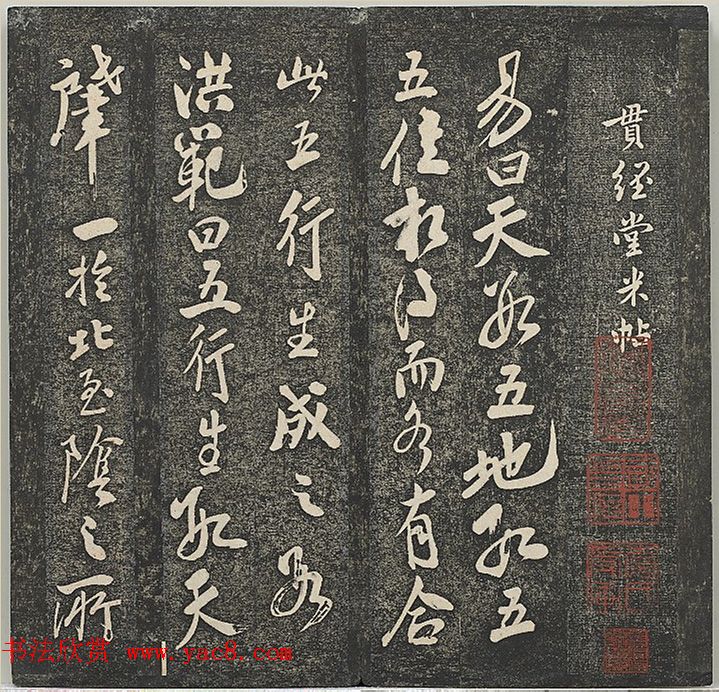 貫經堂米帖
易曰天數五地數五
五位相得而各有合
此五行生成之數
洪範曰五行生數天
肇一於北至陰之所
书法欣赏 www.yac8.com